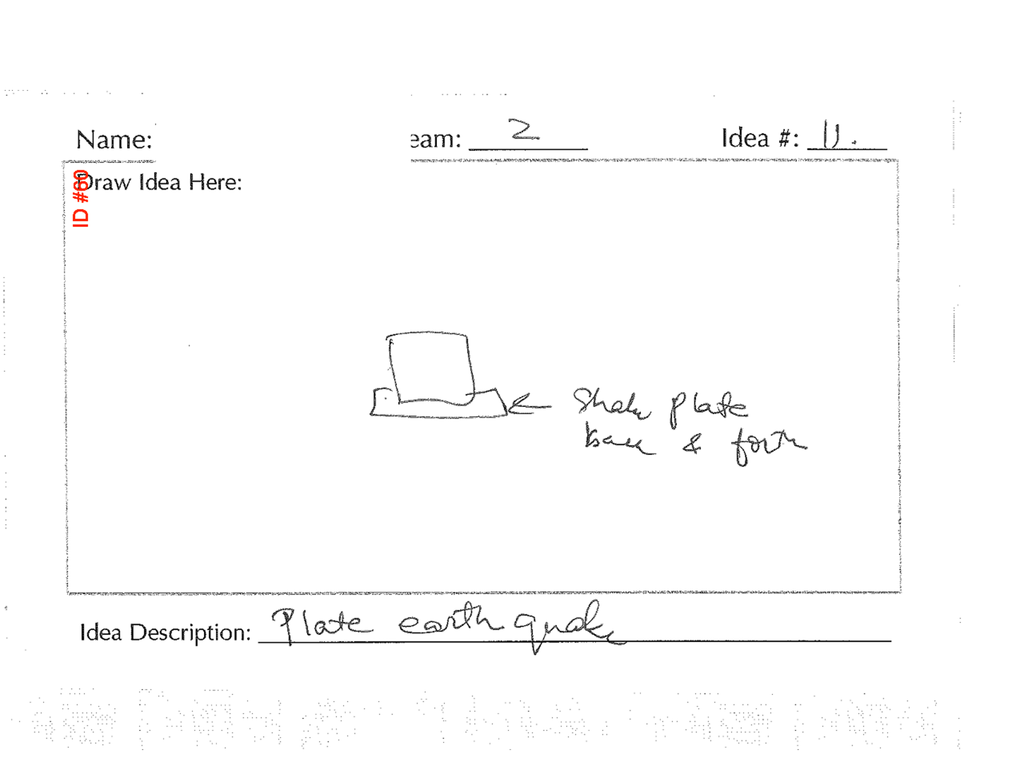 Name:
eam: 2
Idea #: 11.
ID #60
Draw Idea Here:
Shake plate
back & forth
Idea Description: Plate earthquake